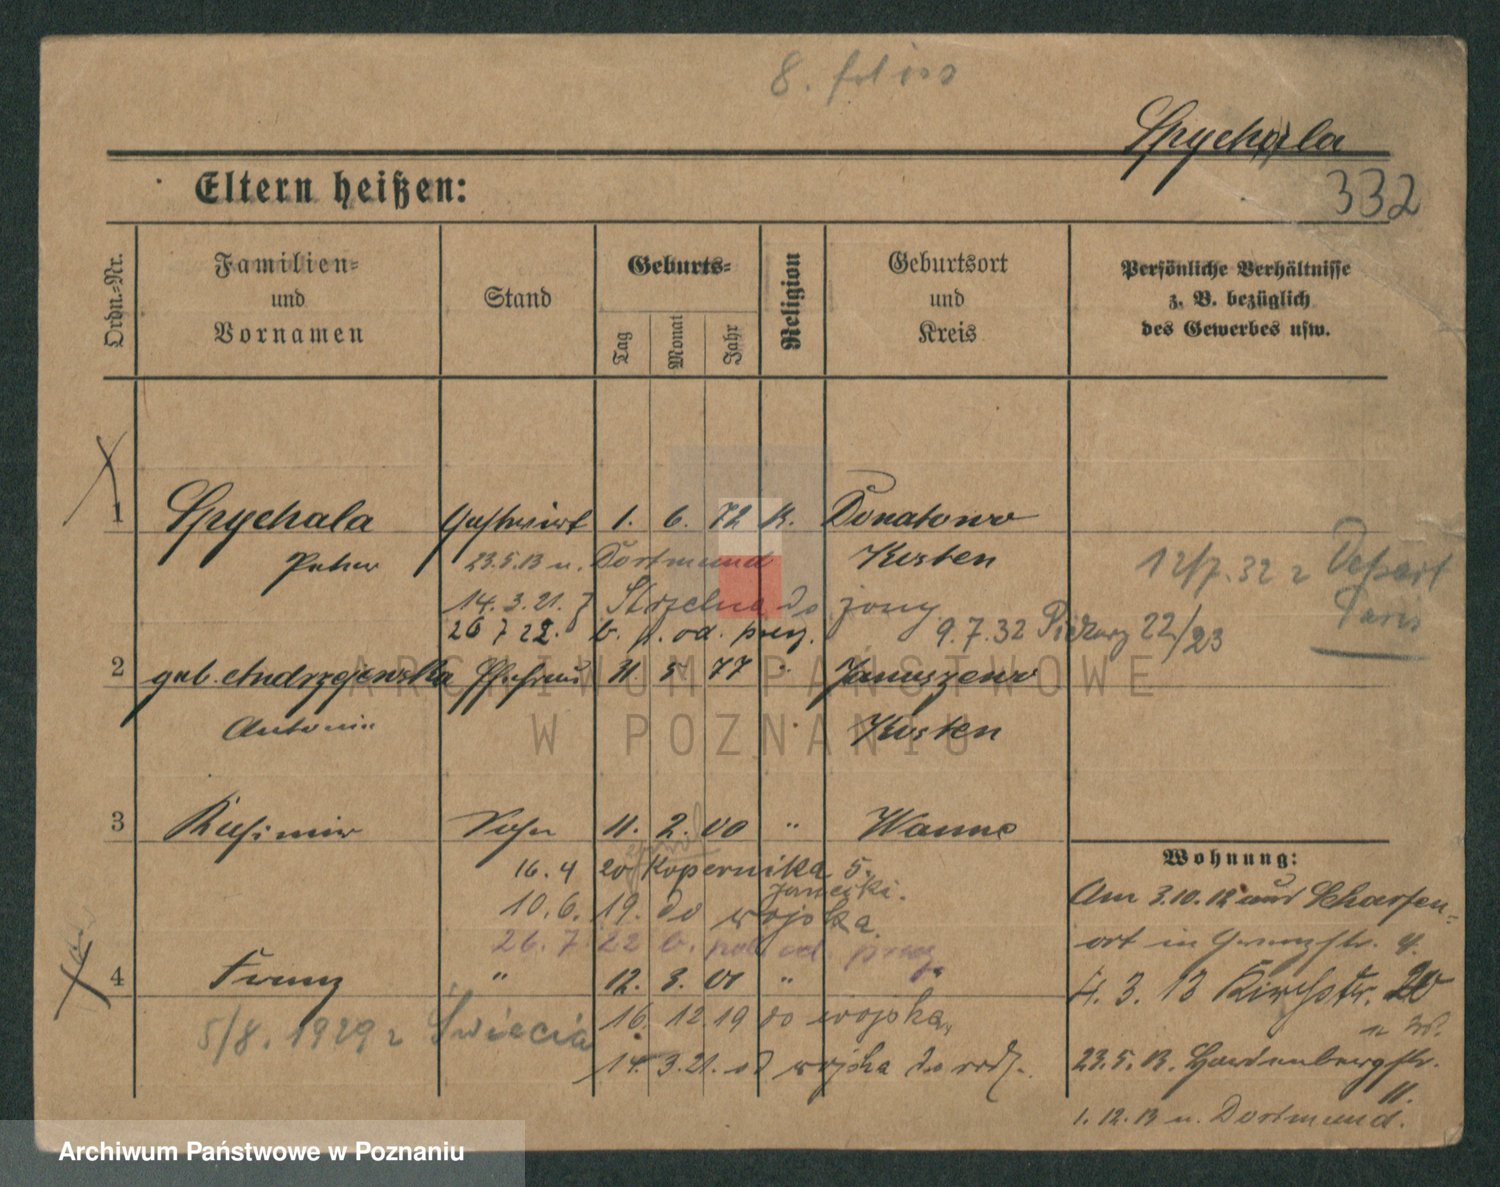 8.
Spychala
332
Eltern heißen:
Ordn.-Nr.
Familien-
und
Vornamen
Stand
Geburts-
Tag
Monat
Jahr
Religion
Geburtsort
und
Kreis
Persönliche Verhältnisse
z. B. bezüglich
des Gewerbes usw.
1 Spychala Gastwirt 1. 6. 72 K. Donatowo
Peter 23.5.13 n. Dortmund Kosten
12/7.32 z Depart
Paris
14.3.21. z Strzelna do żony
26 7 22. b. p. od. prez. 9.7.32 Piekary 22/23
2 geb. Andrzejewska Ehefrau 11. 5 77 " Januszewo
Antonie Kosten
3 Kasimir Sohn 11. 2. 00 " Wanne
16. 4 20 Kopernika 5.
Janecki.
10.6. 19. do wojska.
26. 7 22 b. pol od. prez.
4 Franz " 12. 3. 01 "
5/8. 1929 z Świecia
16. 12. 19 do wojska
14. 3.21. od wojska do rodz.
Wohnung:
Am 3.10.12 aus Scharfen-
ort in 4.
4. 3. 13 Kirchstr. 20
n W.
23.5.13. Hardenbergstr.
11.
1. 12. 13 n. Dortmund.
ARCHIWUM PAŃSTWOWE
W POZNANIU
Archiwum Państwowe w Poznaniu